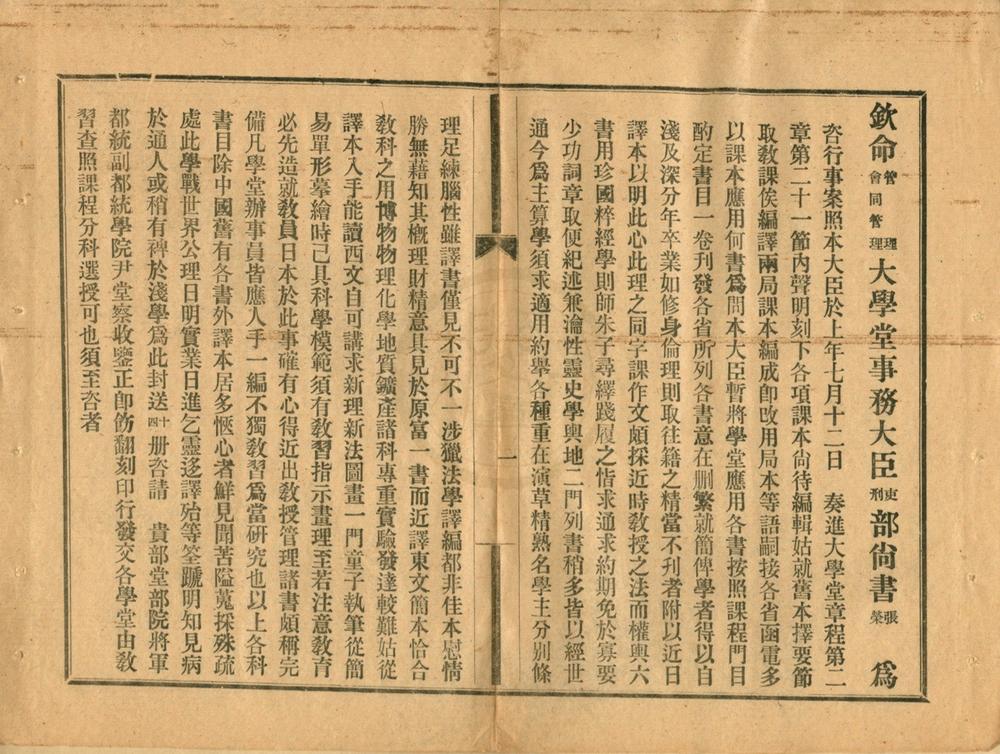 欽命管理會同管理大學堂事務大臣吏刑部尙書張榮　爲
咨行事案照本大臣於上年七月十二日　奏進大學堂章程第二
章第二十一節內聲明刻下各項課本尙待編輯姑就舊本擇要節
取敎課俟編譯兩局課本編成卽改用局本等語嗣接各省函電多
以課本應用何書爲問本大臣暫將學堂應用各書按照課程門目
酌定書目一卷刊發各省所列各書意在刪繁就簡俾學者得以自
淺及深分年卒業如修身倫理則取往籍之精當不刊者附以近日
譯本以明此心此理之同字課作文頗採近時敎授之法而權輿六
書用珍國粹經學則師朱子尋繹踐履之恉求通求約期免於寡要
少功詞章取便紀述兼瀹性靈史學輿地二門列書稍多皆以經世
通今爲主算學須求適用約舉各種重在演草精熟名學主分別條
一
理足練腦性雖譯書僅見不可不一涉獵法學譯編都非佳本慰情
勝無藉知其槪理財精意具見於原富一書而近譯東文簡本恰合
敎科之用博物物理化學地質鑛產諸科專重實驗發達較難姑從
譯本入手能讀西文自可講求新理新法圖畫一門童子執筆從簡
易單形摹繪時已具科學模範須有敎習指示畫理至若注意敎育
必先造就敎員日本於此事確有心得近出敎授管理諸書頗稱完
備凡學堂辦事員皆應人手一編不獨敎習爲當硏究也以上各科
書目除中國舊有各書外譯本居多愜心者鮮見聞苦隘蒐採殊疏
處此學戰世界公理日明實業日進乞靈迻譯殆等筌蹏明知見病
於通人或稍有裨於淺學爲此封送十四册咨請　貴部堂部院將軍
都統副都統學院尹堂察收鑒正卽飭翻刻印行發交各學堂由敎
習查照課程分科選授可也須至咨者